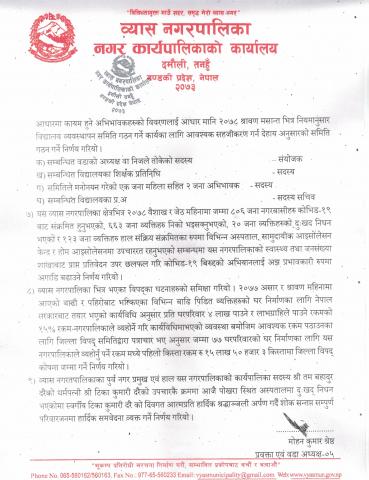 "विविधतायुक्त साझै शहर, समृद्ध मेरो व्यास नगर"
व्यास नगरपालिका
नगर कार्यपालिकाको कार्यालय
दमौली, तनहुँ
गण्डकी प्रदेश, नेपाल
२०७३
आधारमा कायम हुने अभिभावकहरुको विवरणलाई आधार मानि २०७८ श्रावण मसान्त भित्र नियमानुसार
विद्यालय व्यवस्थापन समिति गठन गर्ने कार्यका लागि आवश्यक सहजीकरण गर्न देहाय अनुसारको समिति
गठन गर्ने निर्णय गरियो ।
क) सम्बन्धित वडाको अध्यक्ष वा निजले तोकेको सदस्य - संयोजक
ख) सम्बन्धित विद्यालयका शिक्षक प्रतिनिधि - सदस्य
ग) समितिले मनोनयन गरेको एक जना महिला सहित २ जना अभिभावक - सदस्य
घ) सम्बन्धित विद्यालयका प्र.अ - सदस्य सचिव
७) यस व्यास नगरपालिका क्षेत्रभित्र २०७८ वैशाख र जेठ महिनामा जम्मा ८०६ जना नगरबासीहरु कोभिड-१९
बाट संक्रमित हुनुभएको, ६६३ जना व्यक्तिहरु निको भइसक्नुभएको, २० जना व्यक्तिहरुको दुःखद निधन
भएको र १२३ जना व्यक्तिहरु हाल सक्रिय संक्रमितका रुपमा विभिन्न अस्पताल, सामुदायीक आइसोलेसन
केन्द्र र होम आइसोलेसनमा उपचाररत रहनुभएको सम्बन्धमा यस नगरपालिकाको स्वास्थ्य तथा जनसंख्या
शाखाबाट प्राप्त प्रतिवेदन उपर छलफल गरि कोभिड-१९ बिरुद्दको अभियानलाई अझ प्रभावकारी रुपमा
अगाडि बढाउने निर्णय गरियो ।
८) व्यास नगरपालिका भित्र भएका विपद्का घटनाहरुको समिक्षा गरियो । २०७७ असार र श्रावण महिनामा
आएको बाढी र पहिरोबाट भत्किएका विभिन्न बाढि पिडित व्यक्तिहरुको घर निर्माणका लागि नेपाल
सरकारबाट तयार भएको कार्यविधि अनुसार प्रति घरपरिवार ४ लाख पाउने र लाभग्राहिले पाउने रकमको
१५% रकम नगरपालिकाले व्यहोर्ने गरि कार्यविधिमाभएको व्यवस्था बमोजिम आवश्यक रकम पठाउनका
लागि जिल्ला विपद् समितिद्वारा पत्राचार भए अनुसार जम्मा ७७ घरपरिवारको घर निर्माणका लागि यस
नगरपालिकाले व्यहोर्नु पर्ने रकम मध्ये पहिलो किस्ता रकम रु १५ लाख ५० हजार ३ किस्तामा जिल्ला विपद्
कोषमा जम्मा गर्ने निर्णय गरियो ।
९) व्यास नगरपालिकाका पुर्व नगर प्रमुख एवं हाल यस नगरपालिकाको कार्यपालिका सदस्य श्री राम बहादुर
दरैको धर्मपत्नी श्री टिका कुमारी दरैको उपचारकै क्रममा आज पोखरा स्थित अस्पतालमा दुःखद् निधन
भएकोमा स्वर्गीय टिका कुमारी दरै को दिवगंत आत्माप्रति हार्दिक श्रद्धाञ्जली अर्पण गर्दै शोक सन्तप्त सम्पूर्ण
परिवारजनमा हार्दिक समवेदना व्यक्त गर्ने निर्णय गरियो ।
मोहन कुमार श्रेष्ठ
प्रवक्ता एवं वडा अध्यक्ष-०५
"भुकम्प प्रतिरोधी संरचना निर्माण गरौं, सम्भावित प्रकोपबाट बचौं र बचाऔं"
Phone No. 065-560162/560163, Fax No : 977-65-560233 Email: vyasmunicipality@gmail.com, Web: www.vyasmun.gov.np